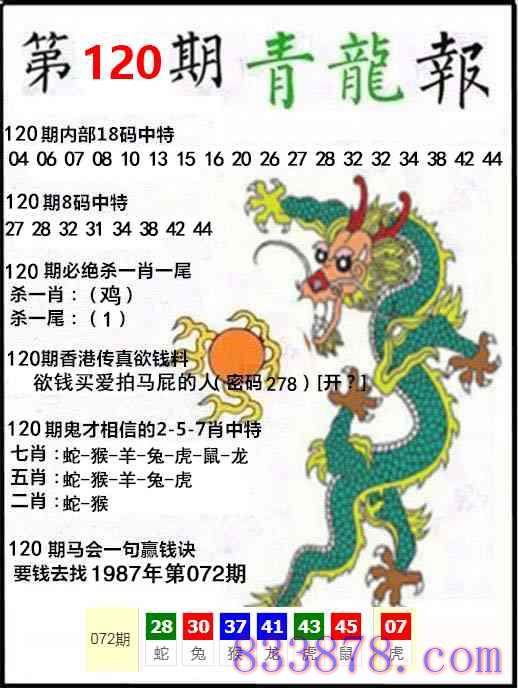 第120期青龍報
120期内部18码中特
04 06 07 08 10 13 15 16 20 26 27 28 32 32 34 38 42 44
120期8码中特
27 28 32 31 34 38 42 44
120期必绝杀一肖一尾
杀一肖：（鸡）
杀一尾：（1）
120期香港传真欲钱料
欲钱买爱拍马屁的人（密码278）[开？]
120期鬼才相信的2-5-7肖中特
七肖：蛇-猴-羊-兔-虎-鼠-龙
五肖：蛇-猴-羊-兔-虎
二肖：蛇-猴
120期马会一句赢钱诀
要钱去找1987年第072期
072期 28 30 37 41 43 45 07
蛇 兔 猴 龙 虎 鼠 虎
833878.com